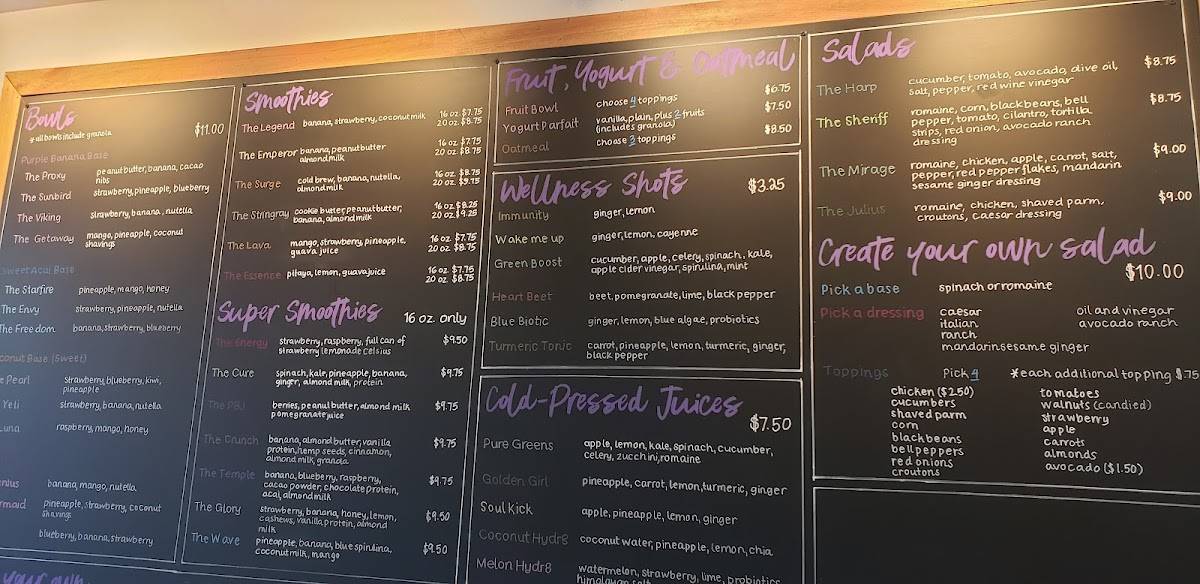 Bowls
* all bowls include granola
$11.00
Purple Banana Base
The Proxy
peanut butter, banana, cacao
nibs
The Sunbird
strawberry, pineapple, blueberry
The Viking
strawberry, banana, nutella
The Getaway
mango, pineapple, coconut
shavings
Sweet Acai Base
The Starfire
pineapple, mango, honey
The Envy
strawberry, pineapple, nutella
The Freedom
banana, strawberry, blueberry
Base (Sweet)
Pearl
strawberry, blueberry, kiwi,
pineapple
Yeti
strawberry, banana, nutella
Luna
raspberry, mango, honey
banana, mango, nutella
pineapple, strawberry, coconut
shavings
blueberry, banana, strawberry
your own
Smoothies
The Legend
banana, strawberry, coconut milk
16 oz. $7.75
20 oz. $8.75
The Emperor
banana, peanut butter
almond milk
16 oz. $7.75
20 oz. $8.75
The Surge
cold brew, banana, nutella,
almond milk
16 oz. $8.75
20 oz. $9.75
The Stringray
cookie butter, peanut butter,
banana, almond milk
16 oz. $8.25
20 oz. $9.25
The Lava
mango, strawberry, pineapple,
guava juice
16 oz. $7.75
20 oz. $8.75
The Essence
pitaya, lemon, guava juice
16 oz. $7.75
20 oz. $8.75
Super Smoothies
16 oz. only
The Energy
strawberry, raspberry, full can of
strawberry lemonade celsius
$9.50
The Cure
spinach, kale, pineapple, banana,
ginger, almond milk, protein
$9.75
The PBJ
berries, peanut butter, almond milk
pomegranate juice
$9.75
The Crunch
banana, almond butter, vanilla
protein, hemp seeds, cinnamon,
almond milk, granola
$9.75
The Temple
banana, blueberry, raspberry,
cacao powder, chocolate protein,
acai, almond milk
$9.75
The Glory
strawberry, banana, honey, lemon,
cashews, vanilla protein, almond
milk
$9.50
The Wave
pineapple, banana, blue spirulina,
coconut milk, mango
$9.50
Fruit, Yogurt & Oatmeal
Fruit Bowl
choose 4 toppings
$6.75
Yogurt Parfait
vanilla, plain, plus 2 fruits
(includes granola)
$7.50
Oatmeal
choose 3 toppings
$8.50
Wellness Shots
$3.25
Immunity
ginger, lemon
Wake me up
ginger, lemon, cayenne
Green Boost
cucumber, apple, celery, spinach, kale,
apple cider vinegar, spirulina, mint
Heart Beet
beet, pomegranate, lime, black pepper
Blue Biotic
ginger, lemon, blue algae, probiotics
Turmeric Tonic
carrot, pineapple, lemon, turmeric, ginger,
black pepper
Cold-Pressed Juices
$7.50
Pure Greens
apple, lemon, kale, spinach, cucumber,
celery, zucchini, romaine
Golden Girl
pineapple, carrot, lemon, turmeric, ginger
Soul Kick
apple, pineapple, lemon, ginger
Coconut Hydr8
coconut water, pineapple, lemon, chia
Melon Hydr8
watermelon, strawberry, lime, probiotics
himalayan salt
Salads
The Harp
cucumber, tomato, avocado, olive oil,
salt, pepper, red wine vinegar
$8.75
The Sheriff
romaine, corn, black beans, bell
pepper, tomato, cilantro, tortilla
strips, red onion, avocado ranch
dressing
$8.75
The Mirage
romaine, chicken, apple, carrot, salt,
pepper, red pepper flakes, mandarin
sesame ginger dressing
$9.00
The Julius
romaine, chicken, shaved parm,
croutons, caesar dressing
$9.00
Create your own salad
$10.00
Pick a base
spinach or romaine
Pick a dressing
caesar
italian
ranch
mandarin sesame ginger
oil and vinegar
avocado ranch
Toppings
Pick 4
*each additional topping $.75
chicken ($2.50)
cucumbers
shaved parm
corn
black beans
bell peppers
red onions
croutons
tomatoes
walnuts (candied)
strawberry
apple
carrots
almonds
avocado ($1.50)